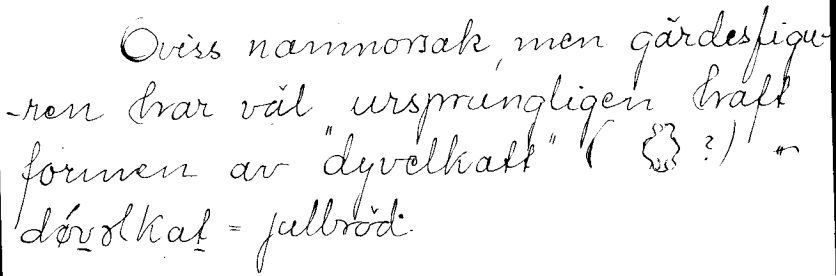 Oviss namnorsak, men gärdesfigu-
-ren har väl ursprungligen haft
formen av "dyvelkatt" ( ?)
døvəlkat = julbröd.